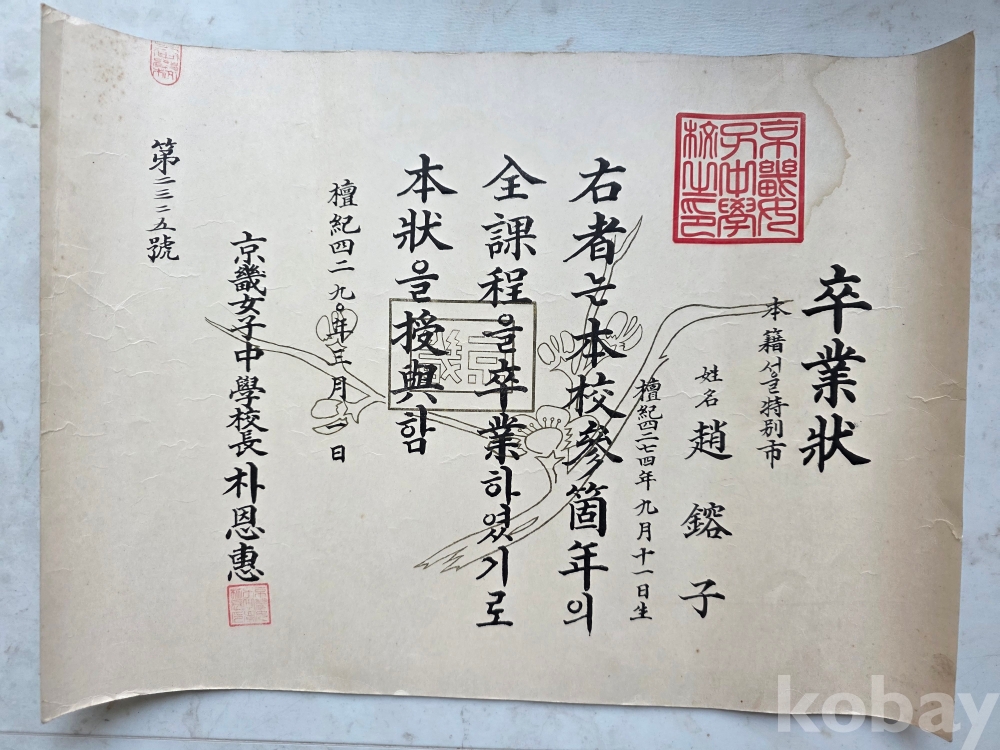 卒業狀
本籍 서울特別市
姓名 趙鎔子
檀紀四二七四年九月十一日生
右者는本校參箇年의
全課程을卒業하였기로
本狀을授與함
檀紀四二九〇年三月二日
京畿女子中學校長 朴恩惠
第二三二五號
京畿女子中學校之印
京畿
kobay